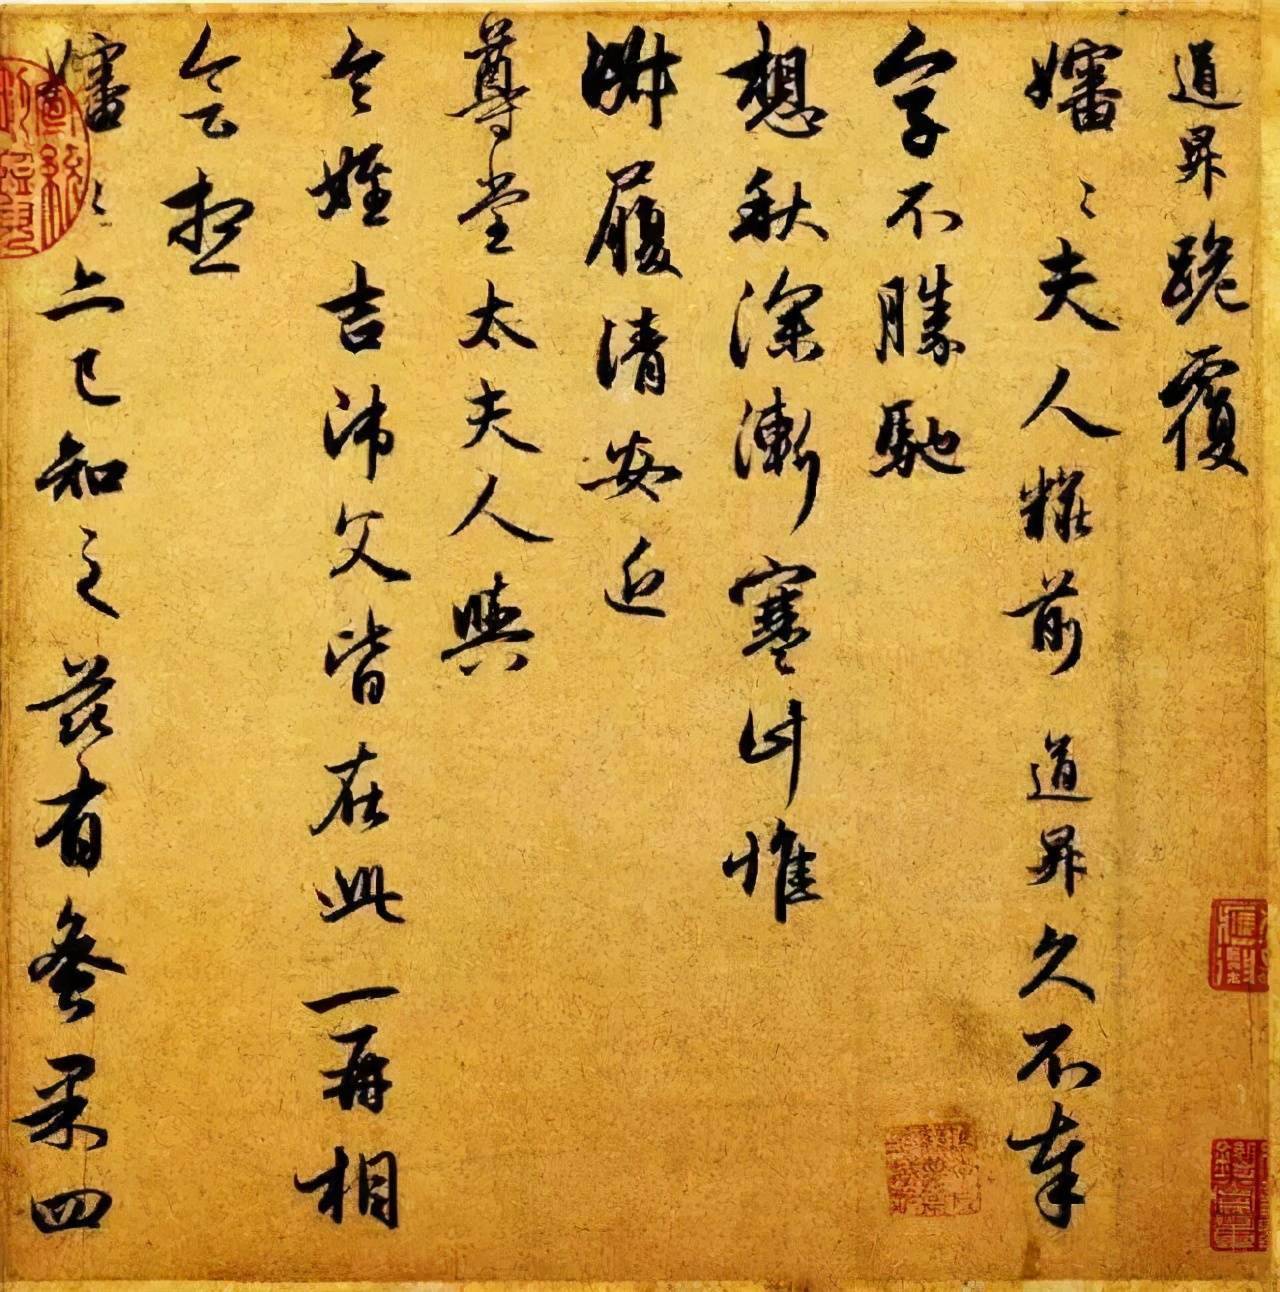 道昇跪覆
嬸〻夫人粧前 道昇久不奉
字不勝馳
想秋深漸寒計惟
淑履清安近
尊堂太夫人與
令姪吉師父皆在此一再相
會想
嬸〻亦已知之茲有蔘果四